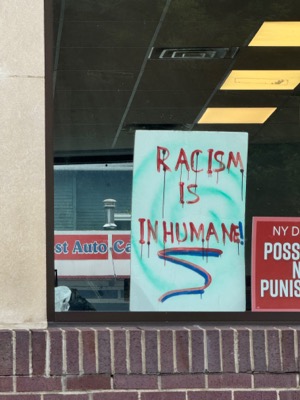 RACISM
IS
INHUMANE!
st Auto Ca
NY D
POSS
N
PUNIS